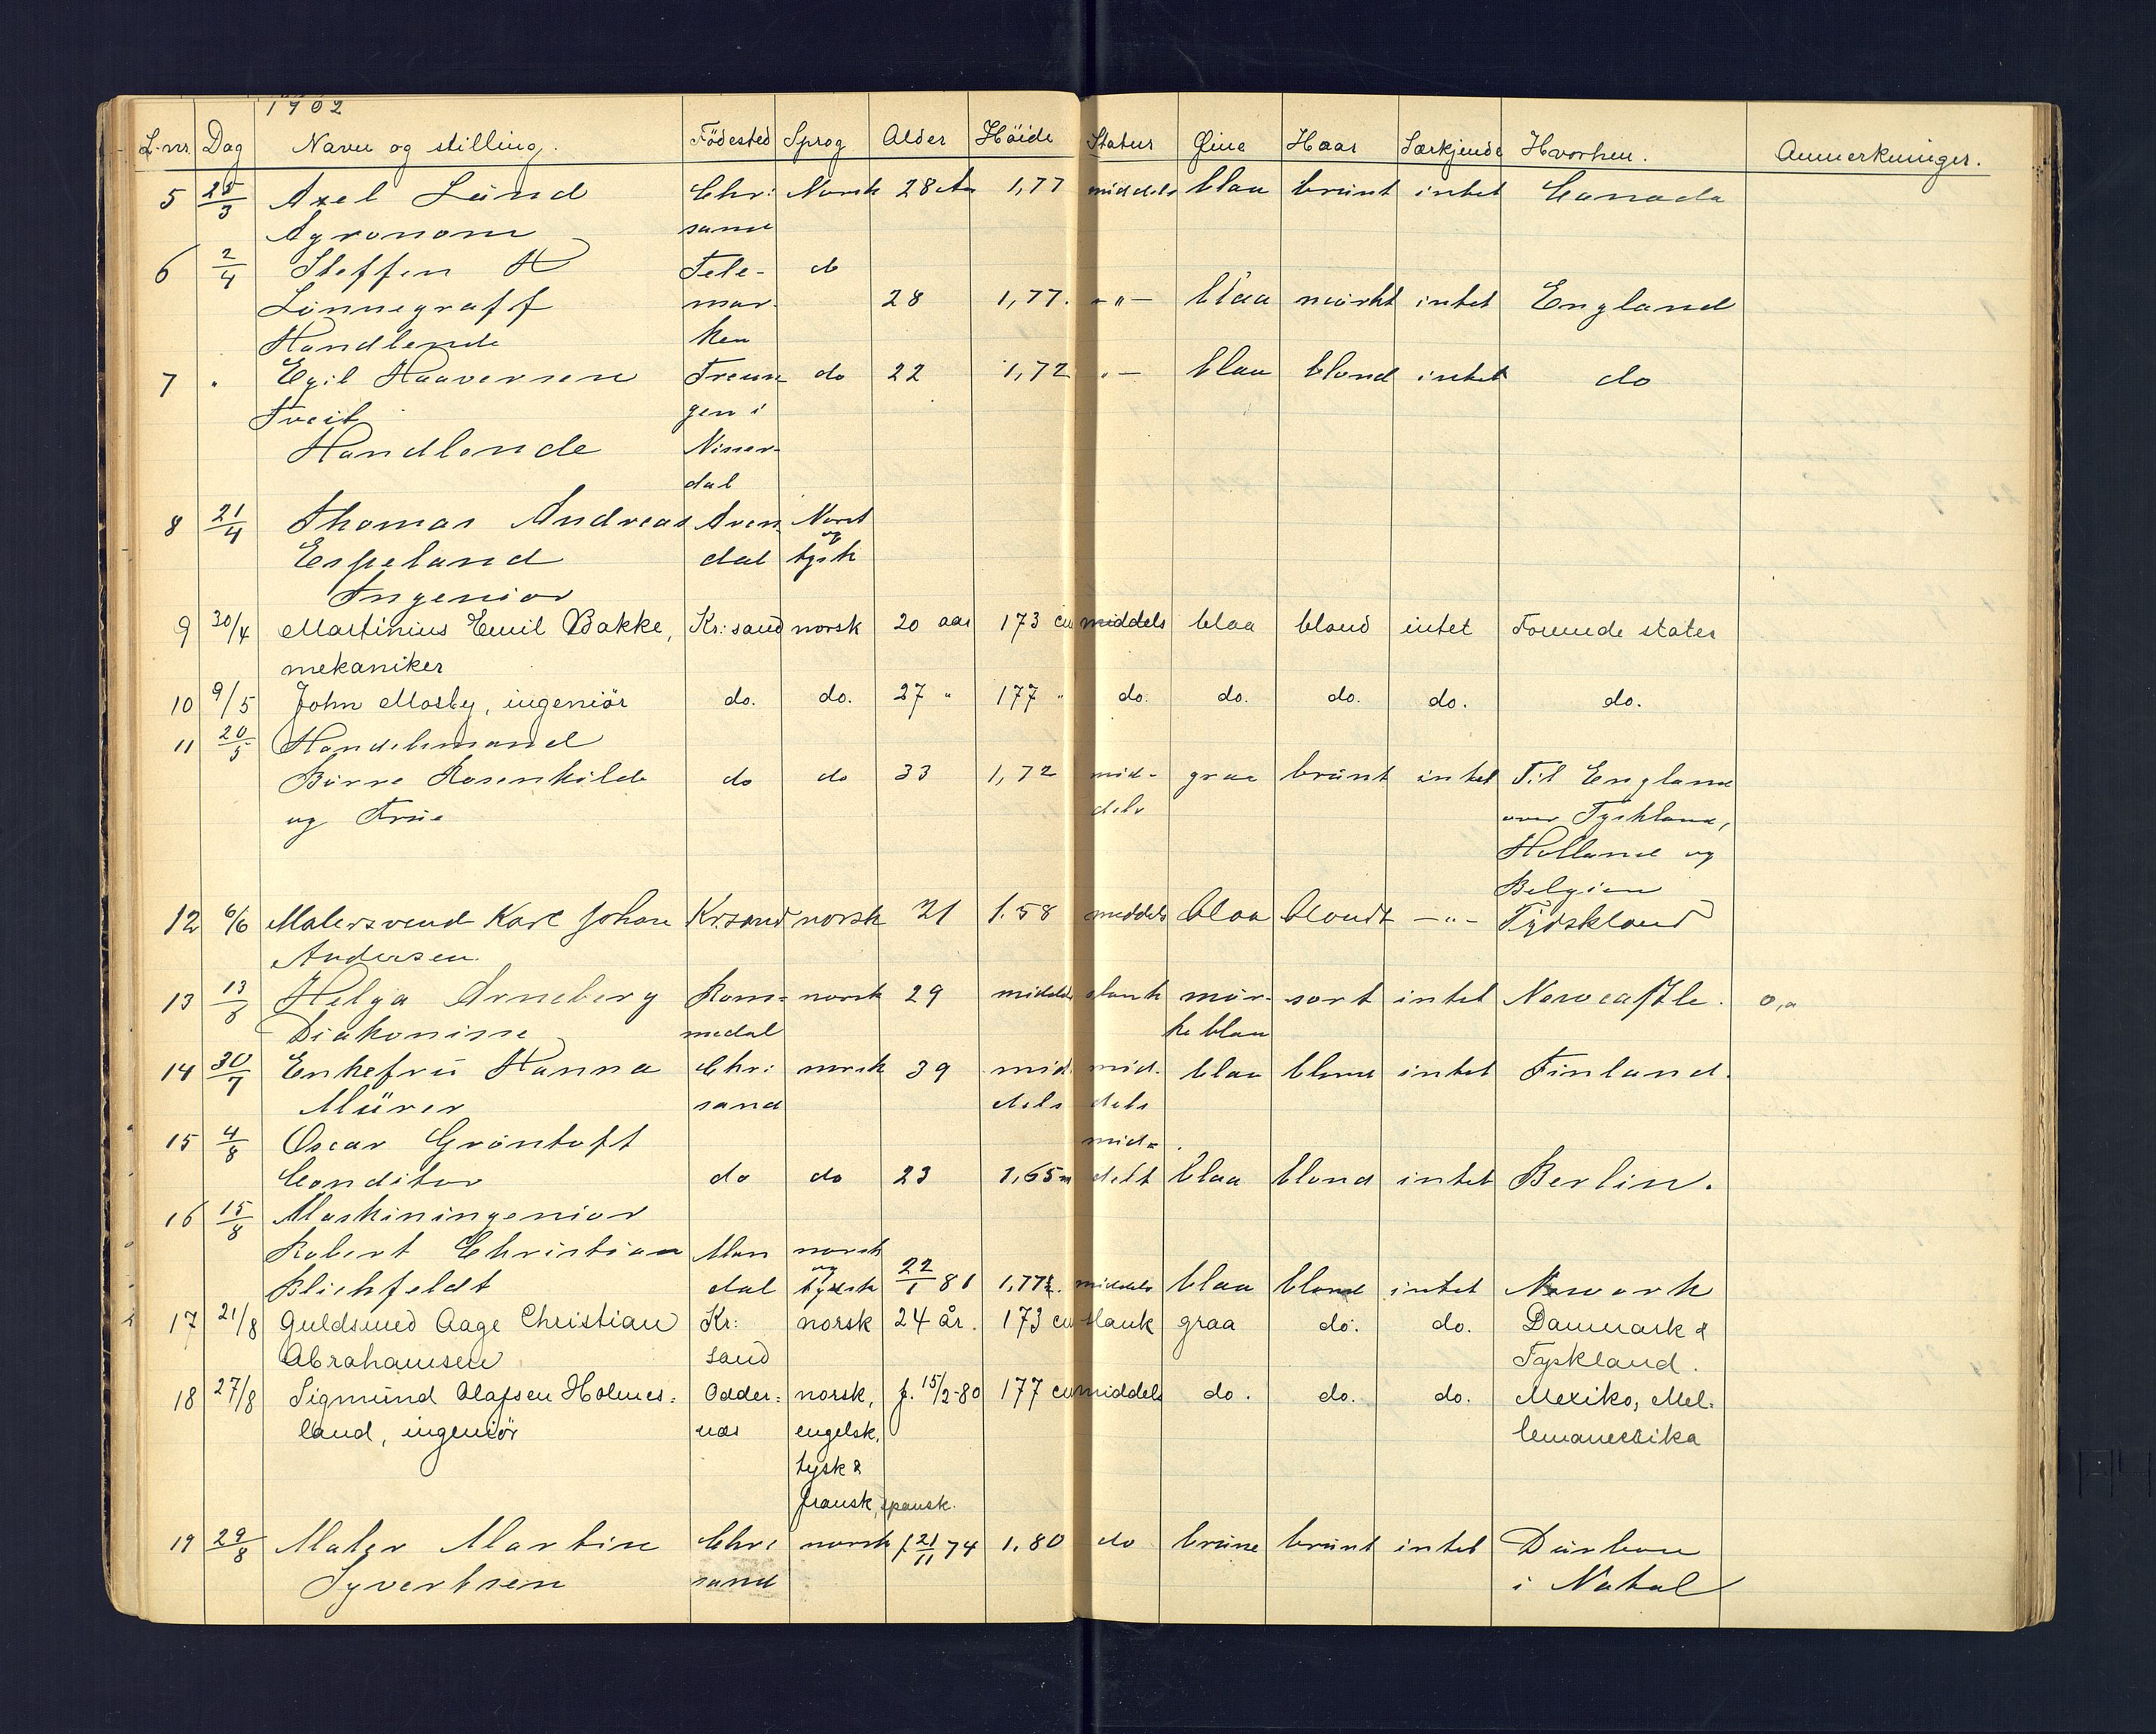 1902
L.nr. Dag Navn og stilling. Födested Sprog Alder Höide Statur Øine Haar Særkjende Hvorhen. Anmerkninger.
5 25/3 Axel Lund Chr: Norsk 28 1,77 middels blaa brunt intet Canada
Agronom sand
6 2/4 Steffen H Tele- do
Lönnegraff mar- 28 1,77. -"- blaa mörkt intet England
Handlende ken
7 " Egil Haaversen Treun- do 22 1,72 "- blaa blond intet do
Tveit gen i
Handlende Nisser-
dal
8 21/4 Thomas Andreas Aren- Norsk
og
Espeland dal tysk
Ingeniør
9 30/4 Martinius Emil Bakke, Kr:sand norsk 20 aar 173 cm middels blaa blond intet Forende stater
mekaniker
10 9/5 John Mosby, ingeniör do. do. 27 " 177 " do. do. do. do. do.
11 20/5 Handelsmand
Börre Rosenkilde do do 33 1,72 mid- graa brünt intet Til England
og Frue dels over Tyskland,
Holland og
Belgien
12 6/6 Malersvend Karl Johan Kr.sand norsk 21 1.58 middels blaa blondt -"- Tydskland
Andersen.
13 13/6 Helga Arneberg Rom- norsk 29 middels slank mör- sort intet Newcastle.
Diakonisse sdal ke blaa
14 30/7 Enkefru Hanna Chr: norsk 39 mid- mid- blaa blond intet Finland.
Mürer sand dels dels
15 4/8 Oscar Gröntoft mid-
Conditor do do 23 1,65 m delt blaa blond intet Berlin.
16 15/8 Maskiningeniør
Robert Christian Man norsk
og
Blichfeldt dal tydsk 22/1 81 1,77½. middels blaa blond intet Nework
17 21/8 Guldsmed Aage Christian Kr: norsk 24 år. 173 cm slank graa do. do. Danmark &
Abrahamsen sand Tyskland.
18 27/8 Sigmund Olafsen Holmes: Odder: norsk, f. 15/2-80 177 cm middels do. do. do. Mexiko, Mel-
land, ingeniör næs engelsk, lemamerika
tysk &
fransk, spansk.
19 29/8 Maler Martin Chr: norsk f. 21/11 74 1.80 do brune brunt intet Durban
Syvertsen sand i Natal